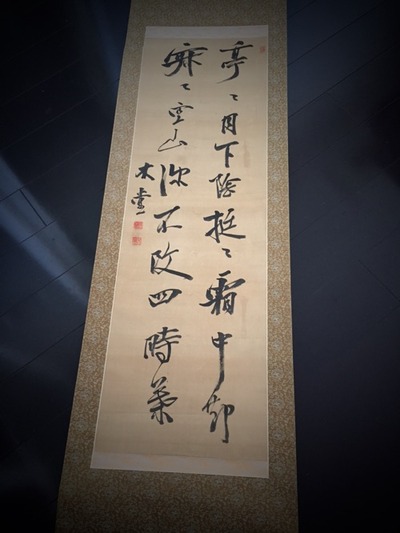 亭〻月下陰挺〻霜中節
寂〻空山深不改四時葉
木堂